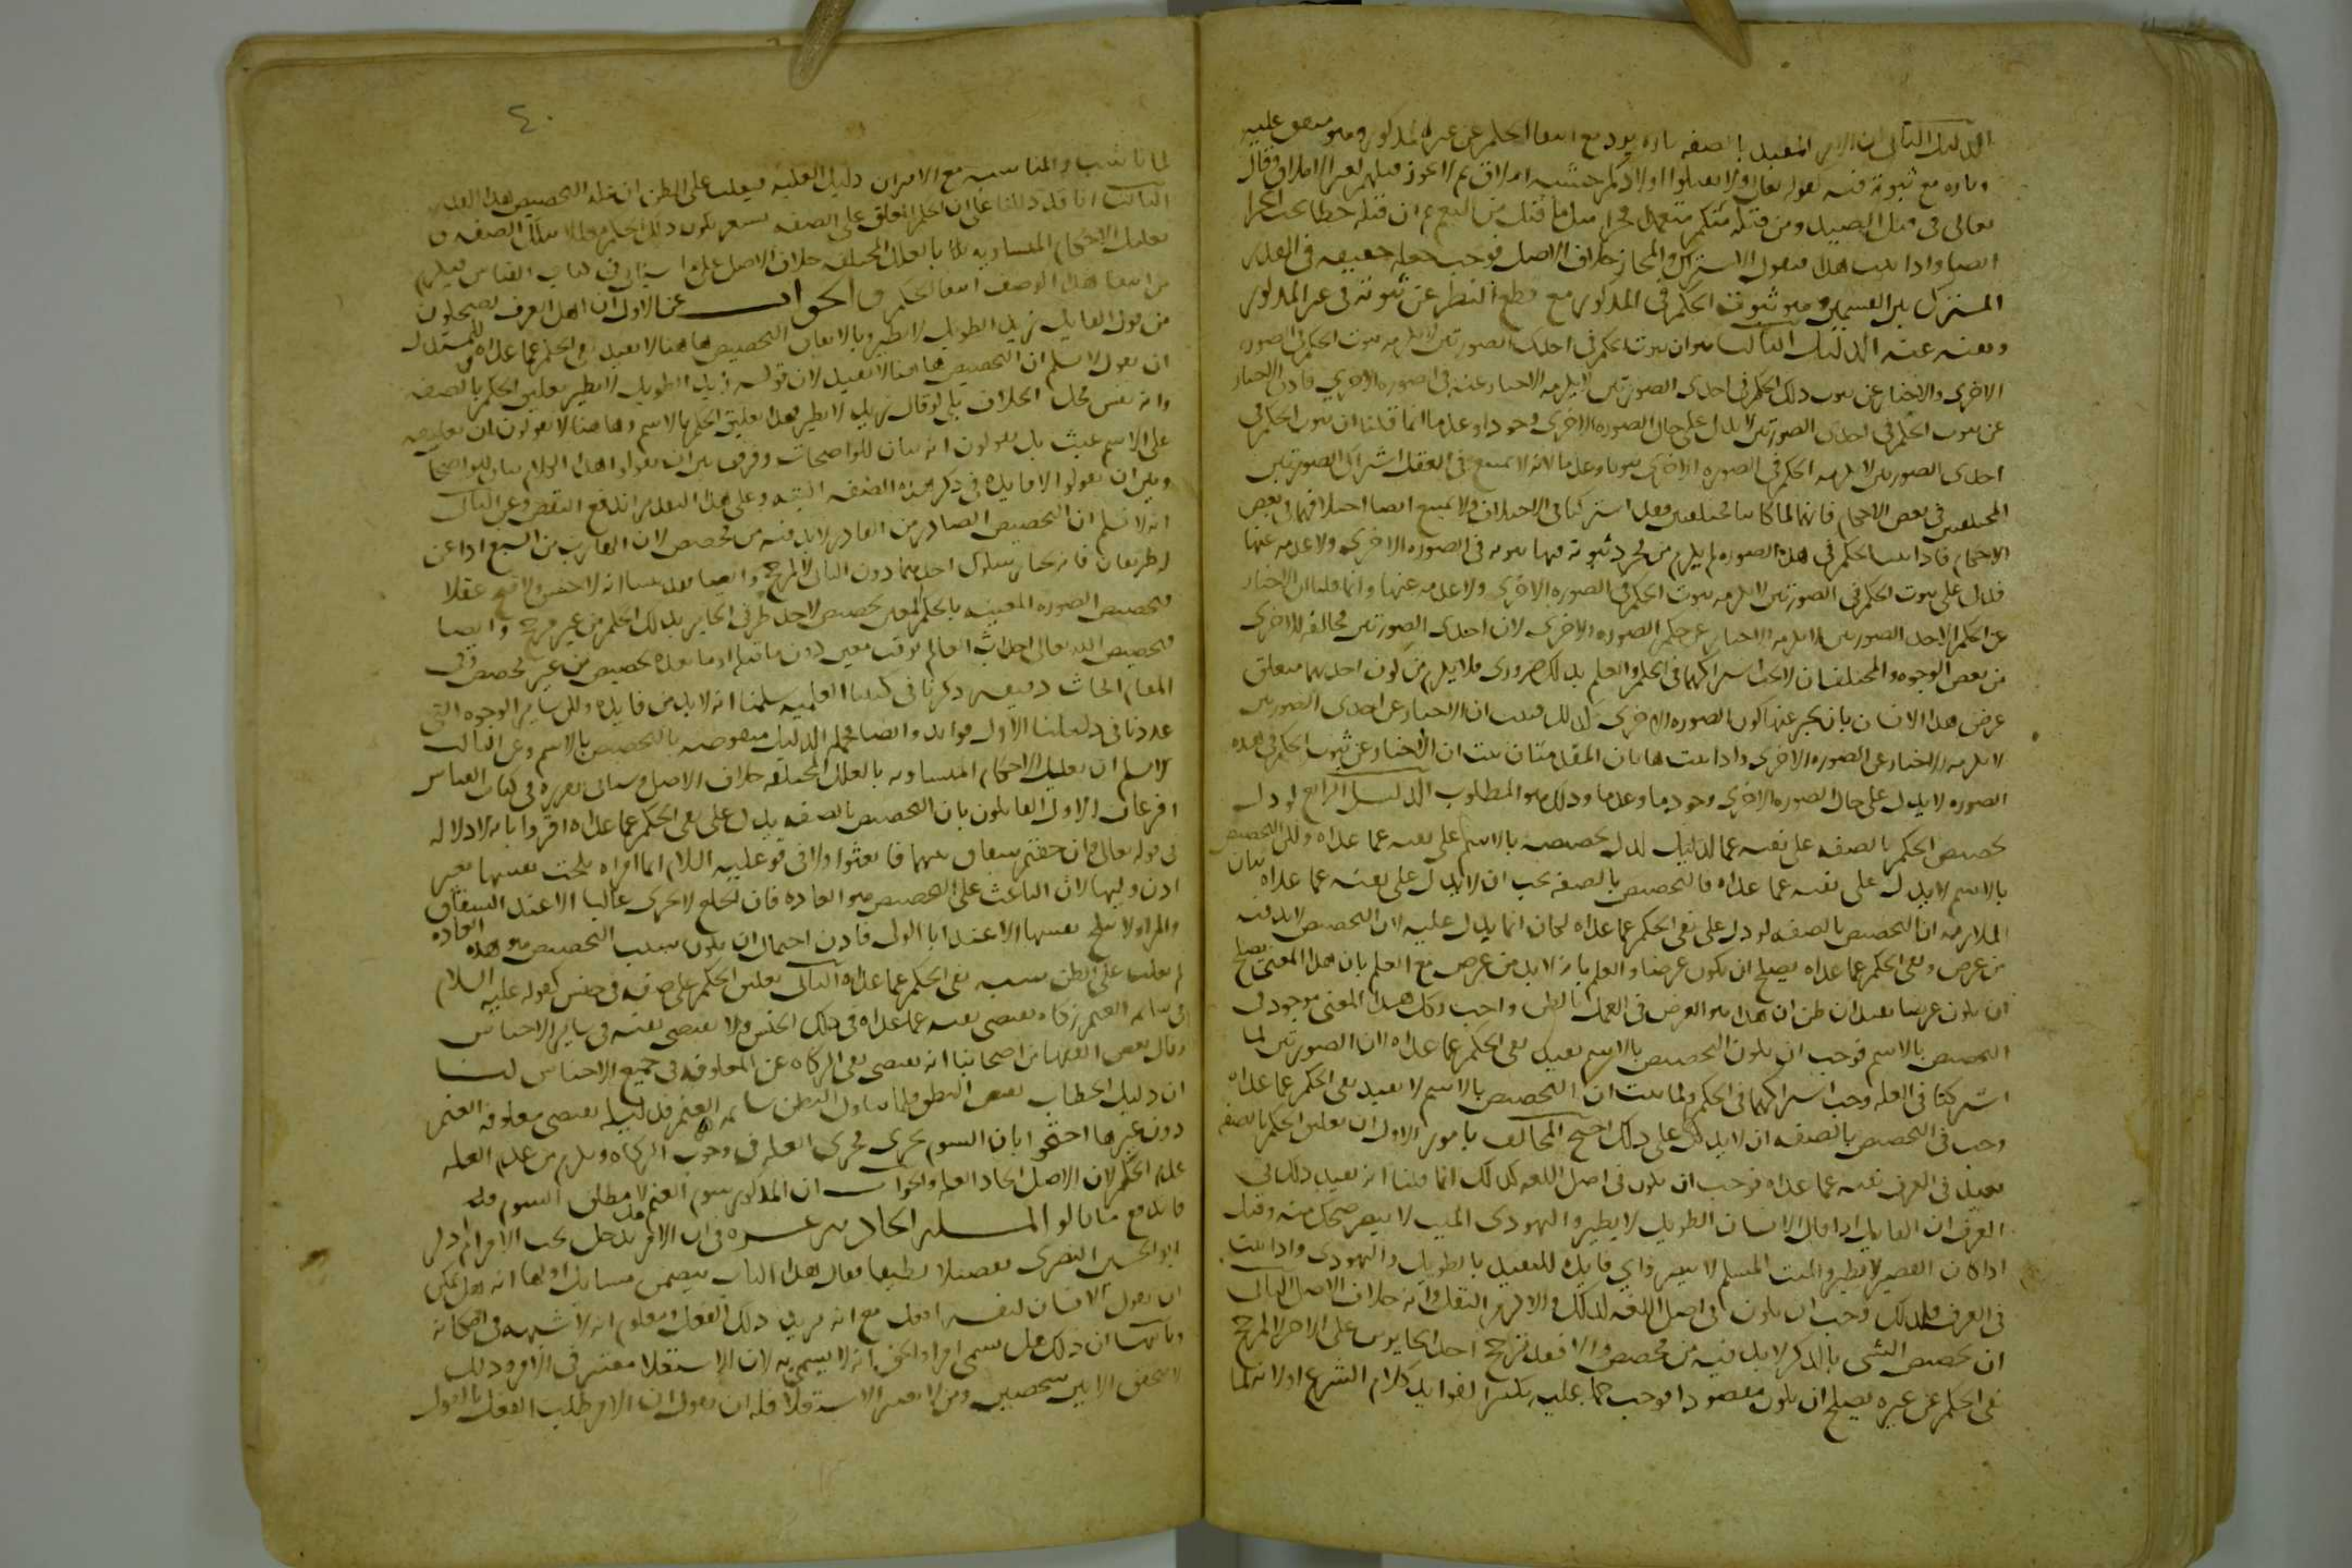 الدليل الثاني ان الامر المقيد بالصفه تاره يرد مع انتفا الحكم عن غير المذكور وهو متفق عليه
وتاره مع ثبوته فيه كقوله تعالى ولا تقتلوا اولادكم خشيه املاق ثم لا يجوز قتلهم لغير الاملاق وقال
تعالى في قتل الصيد ومن قتله منكم متعمدا فجزا مثل ما قتل من النعم ثم ان قتله خطا يجب الجزا
ايضا واذا ثبت هذا فنقول الاشتراك والمجاز خلاف الاصل فوجب جعله حقيقه في القدر
المشترك بين القسمين وهو ثبوت الحكم في المذكور مع قطع النظر عن ثبوته في غير المذكور
ونفيه عنه الدليل الثالث هو ان ثبوت الحكم في احدى الصورتين لا يلزمه ثبوت الحكم في الصوره
الاخرى والاخبار عن ثبوت ذلك الحكم في احدى الصورتين لا يلزمه الاخبار عنه في الصوره الاخرى فاذن الاخبار
عن ثبوت الحكم في احدى الصورتين لا يدل على حال الصوره الاخرى وجودا وعدما انما قلنا ان ثبوت الحكم في
احدى الصورتين لا يلزمه الحكم في الصوره الاخرى ثبوتا وعدما لانه لا يمتنع في العقل اشتراك الصورتين
المختلفتين في بعض الاحكام فانهما لما كانتا مختلفتين فقد اشتركتا في الاختلاف ولا يمتنع ايضا اختلافهما في بعض
الاحكام فاذا ثبت الحكم في هذه الصوره لم يلزم من مجرد ثبوته فيها ثبوته في الصوره الاخرى ولا عدمه عنها
فدل على ثبوت الحكم في الصورتين لا يلزمه ثبوت الحكم في الصوره الاخرى ولا عدمه عنها وانما قلنا ان الاخبار
عن الحكم لاحد الصورتين لا يلزمه الاخبار عن حكم الصوره الاخرى لان احدى الصورتين مخالفه للاخرى
من بعض الوجوه والمختلفان لا يجب اشتراكهما في الحكم والعلم بذلك ضروري فلا يلزم من كون احديهما متعلق
غرض هذا الانسان بان يخبر عنها كون الصوره الاخرى كذلك فثبت ان الاخبار عن احدى الصورتين
لا يلزمه الاخبار عن الصوره الاخرى واذا ثبتت هاتان المقدمتان ثبت ان الاخبار عن ثبوت الحكم في هذه
الصوره لا يدل على حال الصوره الاخرى وجودا وعدما وذلك هو المطلوب الدليل الرابع لو دل
تخصيص الحكم بالصفه على نفيه عما عداه لدل تخصيصه بالاسم على نفيه عما عداه ولكن التخصيص
بالاسم لا يدل على نفيه عما عداه فالتخصيص بالصفه يجب ان لا يدل على نفيه عما عداه بيان
الملازمه ان التخصيص بالصفه لو دل على نفي الحكم عما عداه لكان انما يدل عليه لان التخصيص لابد فيه
من غرض ونفي الحكم عما عداه يصلح ان يكون غرضا والعلم بانه لابد من غرض مع العلم بان هذا المعنى يصلح
ان يكون غرضا يفيد ان ظن ان هذا هو الغرض في العمل بالظن واجب وكل هذا المعنى موجود في
التخصيص بالاسم فوجب ان يكون التخصيص بالاسم يفيد نفي الحكم عما عداه لان الصورتين لما
اشتركتا في العله وجب اشتراكهما في الحكم ولما ثبت ان التخصيص بالاسم لا يفيد نفي الحكم عما عداه
وجب في التخصيص بالصفه ان لا يدل على ذلك احتج المخالف بامور الاول ان تعليق الحكم بالصفه
يفيد في العرف نفيه عما عداه فوجب ان يكون في اصل اللغه كذلك انما قلنا انه يفيد ذلك في
العرف ان القايل اذا قال الانسان الطويل لا يطير واليهودي الميت لا يبصر ضحك منه وقيل
اذا كان القصير لا يطير والميت المسلم لا يبصر فاي فايده للتقييد بالطويل واليهودي واذا ثبت
في العرف كذلك وجب ان يكون في اصل اللغه كذلك والا لزم النقل وانه خلاف الاصل الثاني
ان تخصيص الشي بالذكر لابد فيه من مخصص والا فقد ترجح احد الجايزين على الاخر لا لمرجح
نفي الحكم عن غيره يصلح ان يكون مقصودا فوجب حمله عليه تكثيرا لفوايد كلام الشرع اولا انها لما
٤٠
لما ناسب والمناسبه مع الاقتران دليل العليه فيغلب على الظن ان عله التخصيص هذا القدر
الثالث انا قد دللنا على ان الحكم المعلق على الصفه يشعر بكون ذلك الحكم معللا بتلك الصفه و
تعليل الاحكام المتساويه بالعلل المختلفه خلاف الاصل على ما سياتي في كتاب القياس فيلزم
من انتفا هذا الوصف انتفا الحكم والجواب عن الاول ان اهل العرف يضحكون
من قول القايل زيد الطويل لا يطير وبالاتفاق التخصيص هاهنا لا يفيد نفي الحكم عما عداه وللمستدل
ان يقول لا نسلم ان التخصيص هاهنا لا يفيد لان قوله زيد الطويل لا يطير تعليق الحكم بالصفه
وانه نفس محل الخلاف بلى لو قال زيد لا يطير فهذا تعليق الحكم بالاسم وهاهنا لا يقولون ان تعليقه
على الاسم عبث بل يقولون انه بيان للواضحات وفرق بين ان يقولوا هذا الكلام بيان للواضحات
وبين ان يقولوا لا فايده في ذكر هذه الصفه البته وعلى هذا التقدير اندفع النقض وعن الثاني
انه لا نسلم ان التخصيص الصادر من القادر لابد فيه من مخصص لان الهارب من السبع اذا عن
له طريقان فانه يختار سلوك احدهما دون الثاني لا لمرجح وايضا فقد بينا انه لا حسن ولا قبح عقلا
فتخصيص الصوره المعينه بالحكم المعين تخصيص لاحد طرفي الجايز بذلك الحكم من غير مرجح وايضا
فتخصيص الله تعالى احداث العالم بوقت معين دون ما قبله او ما بعده تخصيص من غير مخصص وفي
المقام ابحاث دقيقه ذكرناها في كتبنا العقليه سلمنا انه لابد من فايده ولكن ساير الوجوه التي
عددناها في دليلنا الاول فوايد وايضا فجمله الدليل منقوضه بالتخصيص بالاسم وعن الثالث
لا نسلم ان تعليل الاحكام المتساويه بالعلل المختلفه خلاف الاصل وسياتي تقريره في كتاب القياس
فرعان الاول القايلون بان التخصيص بالصفه يدل على نفي الحكم عما عداه اقروا بانه لا دلاله
في قوله تعالى وان خفتم شقاق بينهما فابعثوا ولا في قوله عليه السلام ايما امراه نكحت نفسها بغير
اذن وليها لان الباعث على التخصيص هو العاده فان الخلع لا يجري غالبا الا عند الشقاق
والمراه لا تنكح نفسها الا عند ابا الولي فاذن احتمال ان يكون سبب التخصيص هو هذه العاده
لم يغلب على الظن سببه نفي الحكم عما عداه الثاني تعليق الحكم على صفه في جنس كقوله عليه السلام
في سايمه الغنم زكاه يقتضي نفيه عما عداه في ذلك الجنس ولا يقتضي نفيه في ساير الاجناس
وقال بعض الفقها من اصحابنا انه يقتضي نفي الزكاه عن المعلوفه في جميع الاجناس لنا
ان دليل الخطاب نقيض النطق فلما تناول النطق سايمه الغنم فدليله يقتضي معلوفه الغنم
دون غيرها احتجوا بان السوم يجري مجرى العله في وجوب الزكاه ويلزم من عدم العله
عدم الحكم لان الاصل اتحاد العله والجواب ان المذكور سوم الغنم لا مطلق السوم فله
فاندفع ما قالوا المسله الحاديه عشره في ان الامر هل يدخل تحت الامر ام لا ذكر
ابو الحسين البصري تفصيلا لطيفا فقال هذا الباب يتضمن مسايل اولها انه هل يمكن
ان يقول الانسان لنفسه افعل مع انه يريد ذلك الفعل ومعلوم انه لا شبهه في امكانه
وثانيها ان ذلك هل يسمى امرا والحق انه لا يسمى به لان الاستعلا معتبر في الامر وذلك
لا يتحقق الا بين شخصين ومن لا يعتبر الاستعلا فله ان يقول ان الامر طلب الفعل بالقول